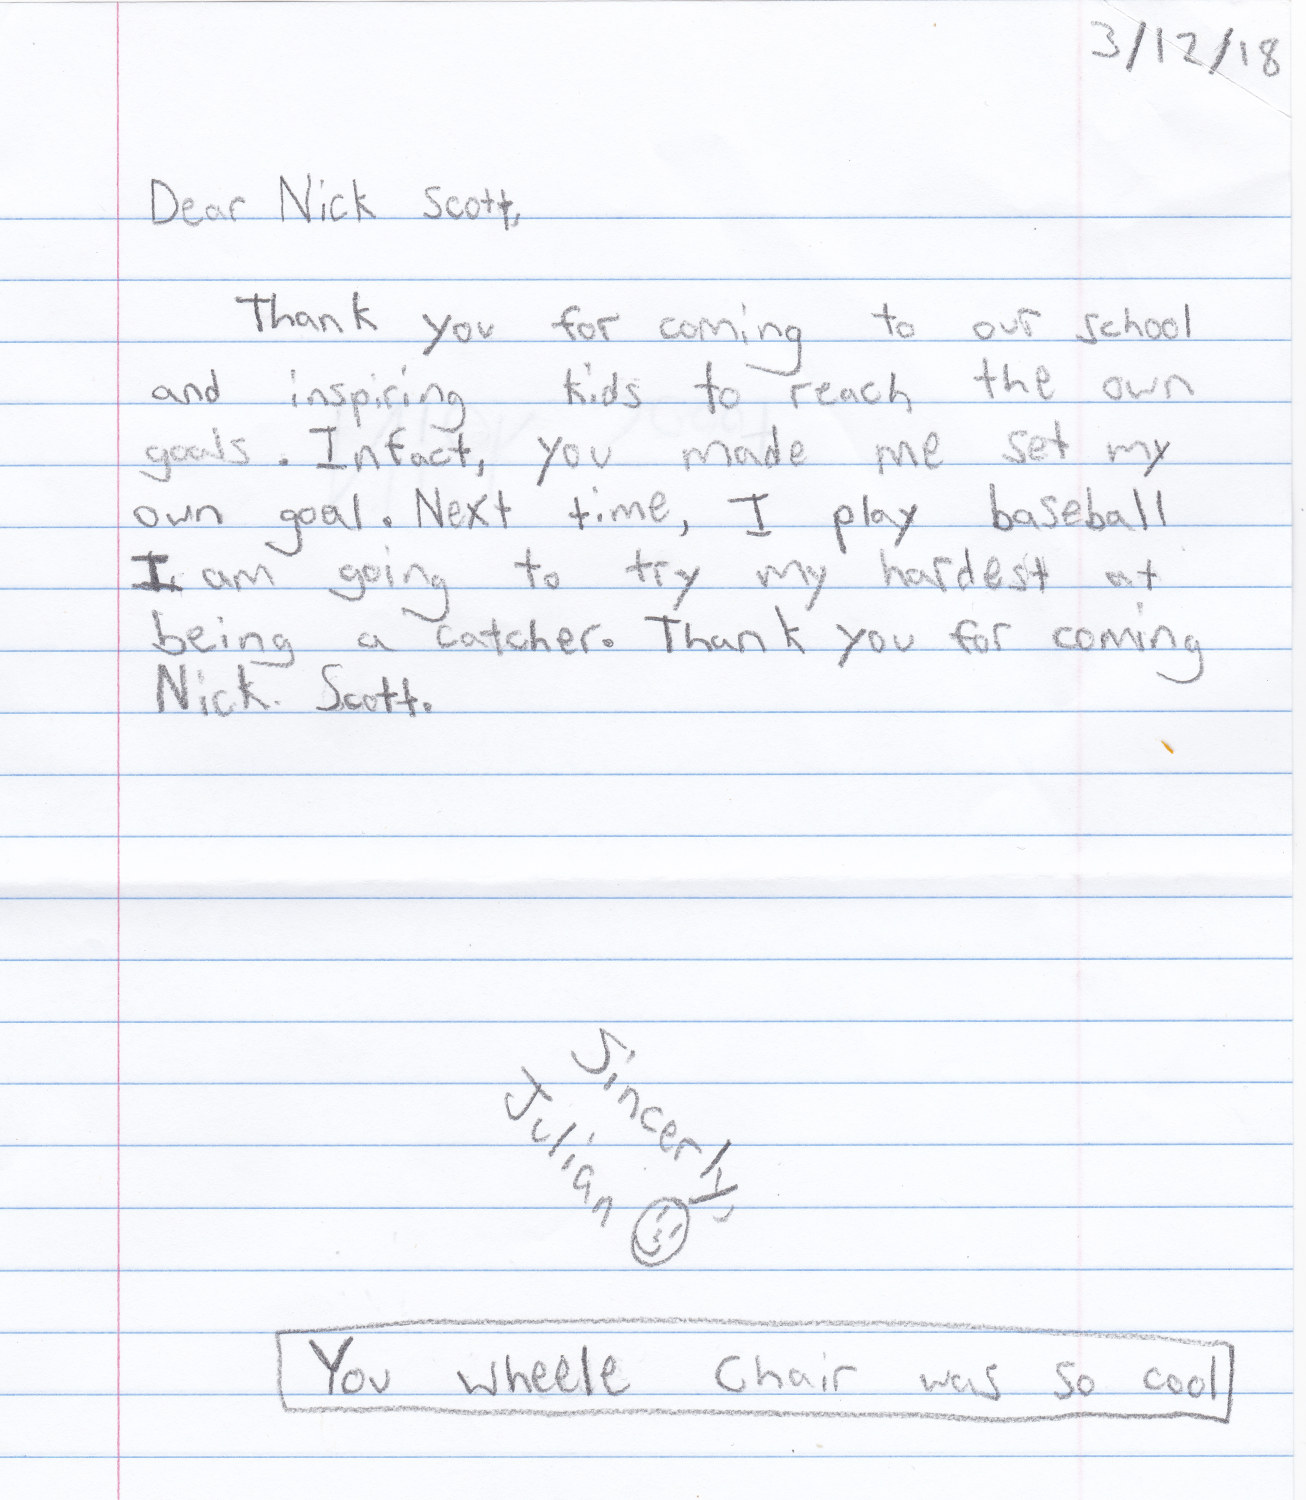 3/12/18
Dear Nick Scott,
Thank you for coming to our school
and inspiring kids to reach the own
goals. Infact, you made me set my
own goal. Next time, I play baseball
I am going to try my hardest at
being a catcher. Thank you for coming
Nick. Scott.
Sincerly,
Julian
You wheele Chair was so cool